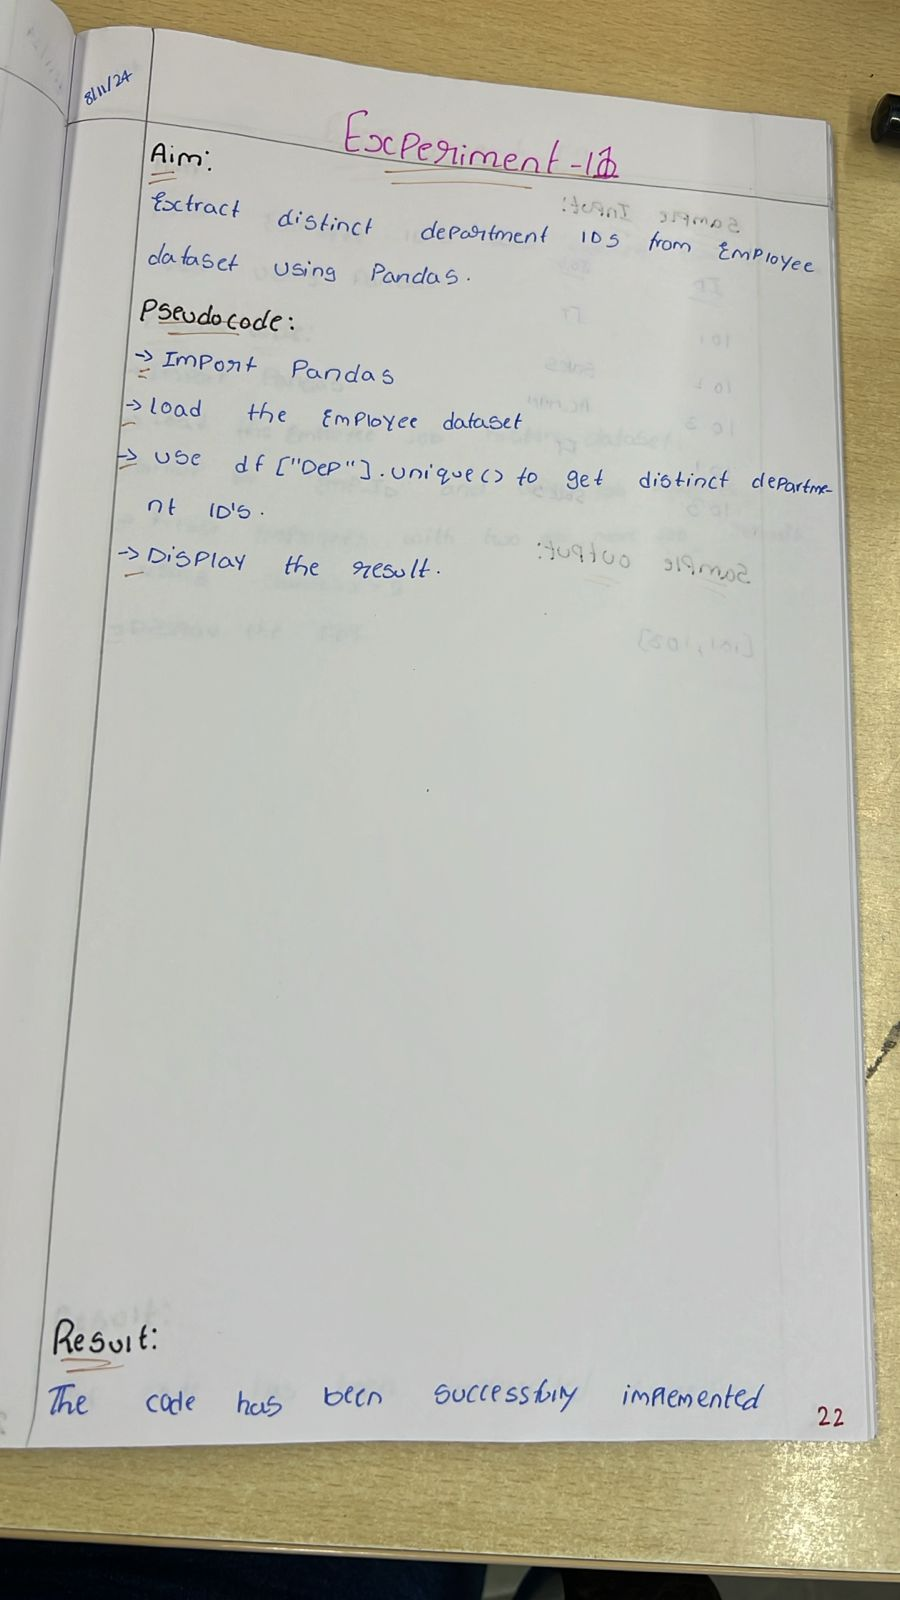 8/11/24
Experiment-11
Aim:
Extract distinct department IDS from Employee
dataset using Pandas.
Pseudocode:
→ Import Pandas
→ load the Employee dataset
→ use df ["DeP"].unique() to get distinct departme-
nt ID's.
→ Display the result.
Sample Input:
ID
101
IT
Sales
103
Sample output:
[101, 102]
Result:
The code has been successfuly implemented
22